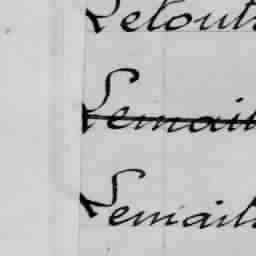 Letout
Lemait
Lemaît